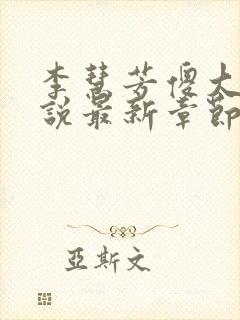 李慧芳傻大
說最新章節
亞斯文